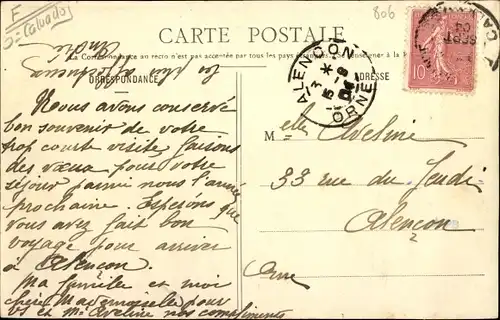 F
806
= Calvados
CARTE POSTALE
La Correspondance au recto n'est pas acceptée par tous les pays étrangers
CORRESPONDANCE
ADRESSE
Nous avons conservé
bon souvenir de votre
trop courte visite, faisons
des vœux pour votre
séjour parmi nous l'année
prochaine. Espérons que
vous avez fait bon
voyage pour arriver
à Alençon.
Ma famille et moi
chère Mademoiselle pour
vs et Mr Aveline nos compliments
ALENÇON
ORNE
10
SEPT
Melle Aveline
33 rue du Jeudi
Alencon
2
Orne